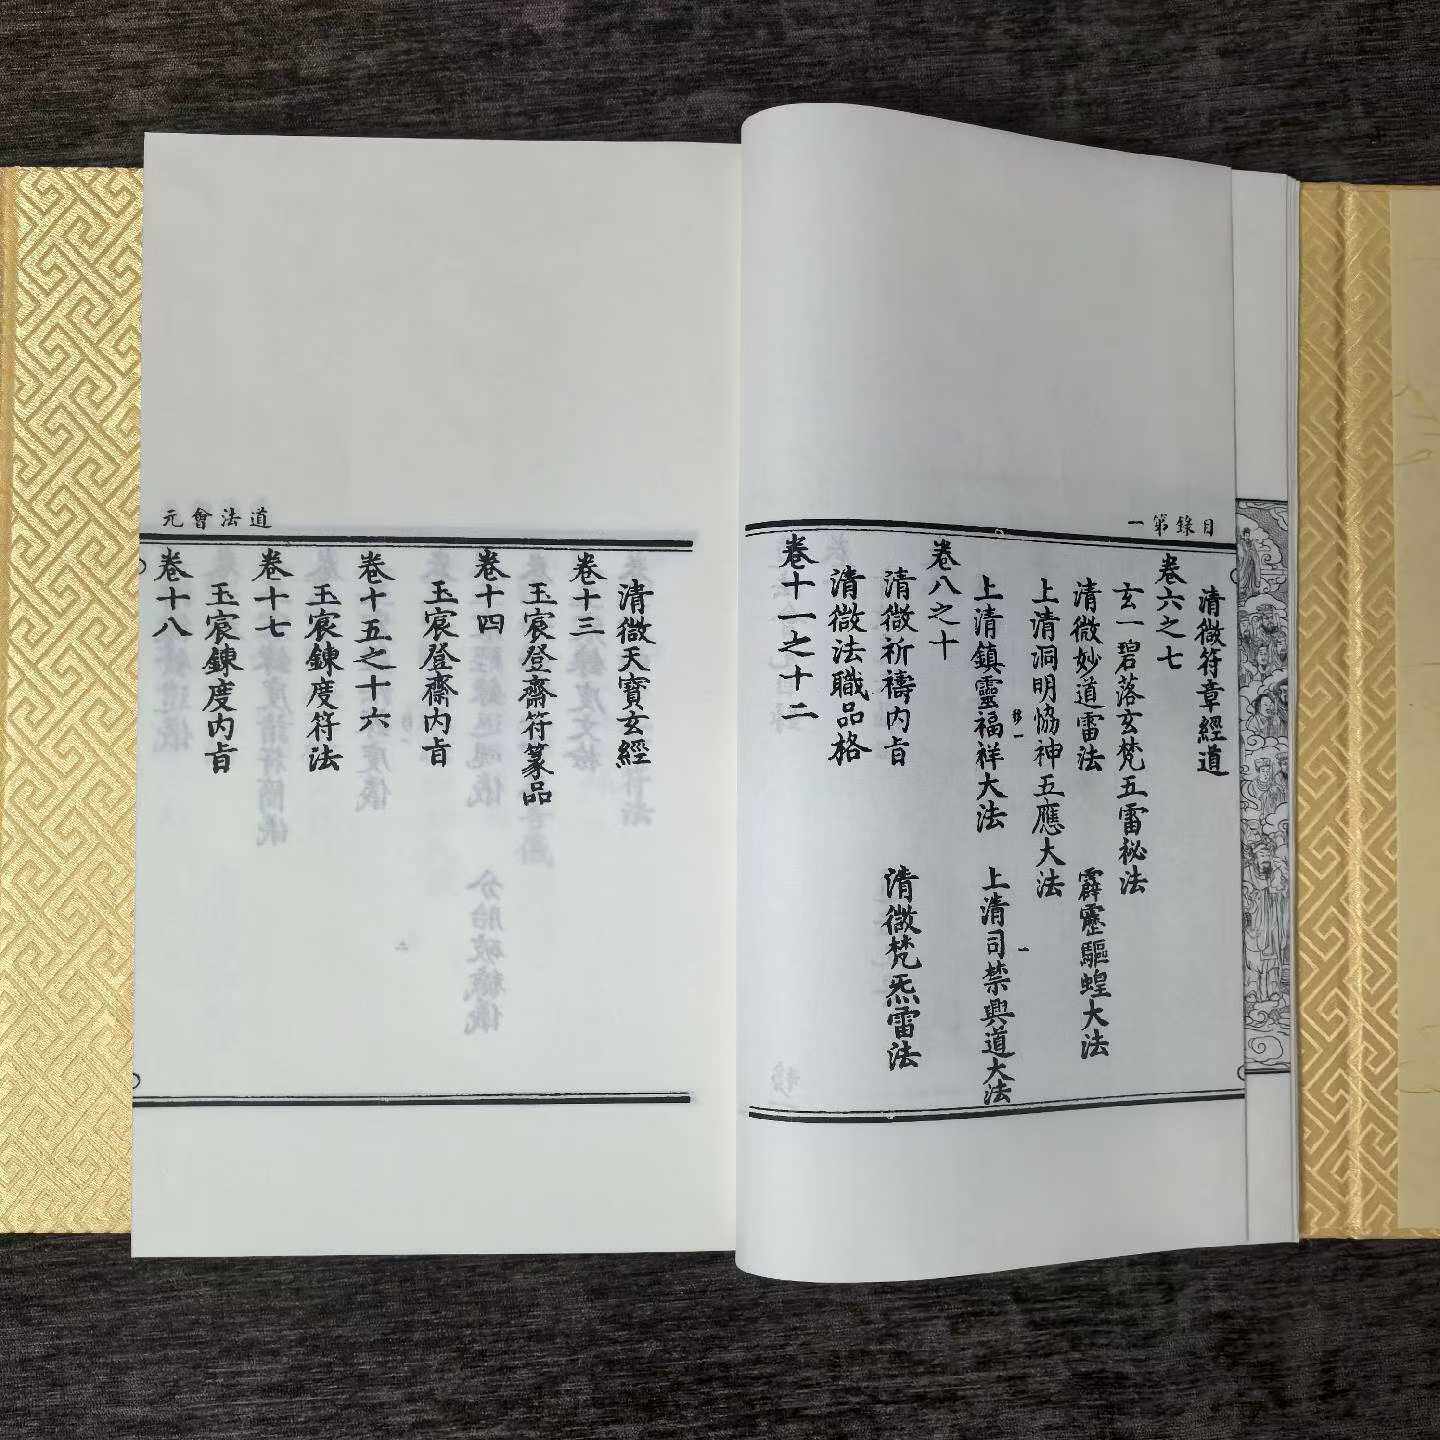 目錄第一
清微符章經道
卷六之七
玄一碧落玄梵五雷祕法
清微妙道雷法 霹靂驅蝗大法
上清洞明協神五應大法
上清鎮靈福祥大法 上清司禁興道大法
卷八之十
清微祈禱內旨 清微梵炁雷法
清微法職品格
卷十一之十二
道法會元
清微天寶玄經
卷十三
玉宸登齋符篆品
卷十四
玉宸登齋內旨
卷十五之十六
玉宸鍊度符法
卷十七
玉宸鍊度內旨
卷十八